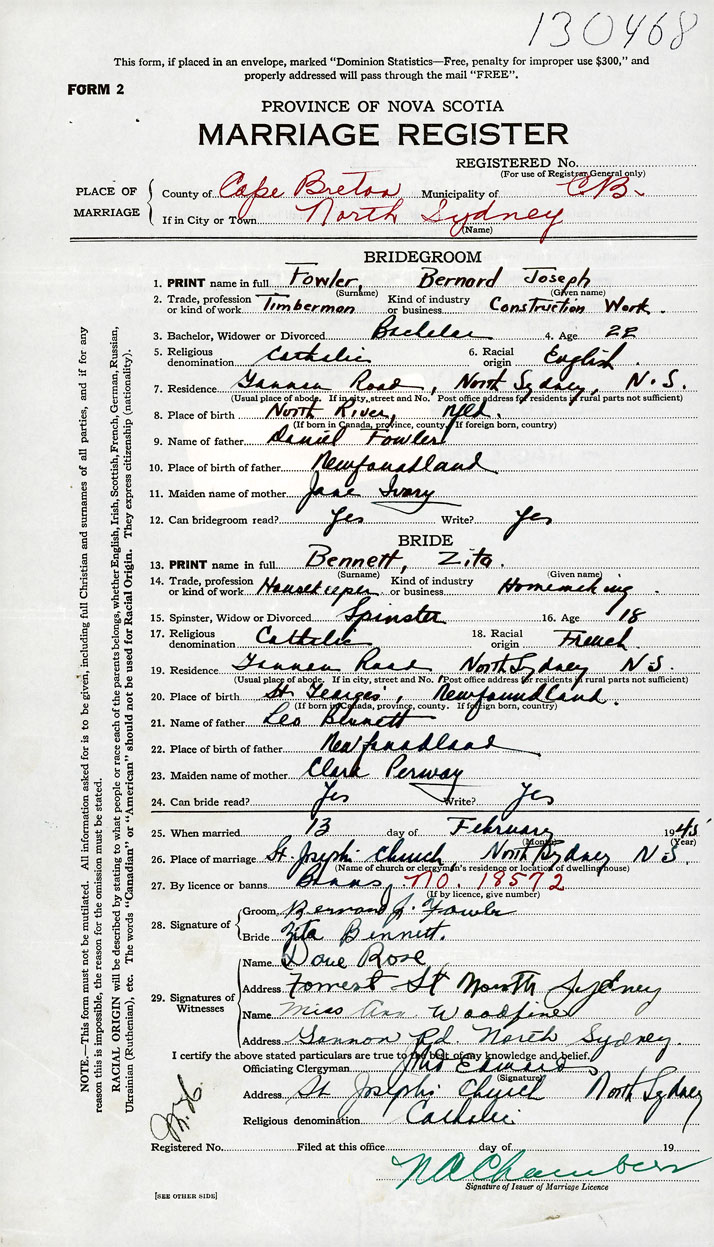 130468
This form, if placed in an envelope, marked "Dominion Statistics—Free, penalty for improper use $300," and
properly addressed will pass through the mail "FREE".
FORM 2
PROVINCE OF NOVA SCOTIA
MARRIAGE REGISTER
REGISTERED No.
(For use of Registrar General only)
PLACE OF MARRIAGE
County of Cape Breton Municipality of C.B.
If in City or Town North Sydney
(Name)
BRIDEGROOM
1. PRINT name in full Fowler, Bernard Joseph
(Surname) (Given name)
2. Trade, profession or kind of work Timberman Kind of industry or business Construction Work.
3. Bachelor, Widower or Divorced Bachelor 4. Age 22
5. Religious denomination Catholic 6. Racial origin English
7. Residence Gannon Road, North Sydney, N.S.
(Usual place of abode. If in city, street and No. Post office address for residents in rural parts not sufficient)
8. Place of birth North River, Nfld.
(If born in Canada, province, county. If foreign born, country)
9. Name of father Daniel Fowler
10. Place of birth of father Newfoundland
11. Maiden name of mother Jane Ivory
12. Can bridegroom read? Yes Write? Yes
BRIDE
13. PRINT name in full Bennett, Zita.
(Surname) (Given name)
14. Trade, profession or kind of work Housekeeper Kind of industry or business Homemaking.
15. Spinster, Widow or Divorced Spinster 16. Age 18
17. Religious denomination Catholic 18. Racial origin French.
19. Residence Gannon Road North Sydney N.S.
(Usual place of abode. If in city, street and No. Post office address for residents in rural parts not sufficient)
20. Place of birth St Georges, Newfoundland.
(If born in Canada, province, county. If foreign born, country)
21. Name of father Leo Bennett
22. Place of birth of father Newfoundland
23. Maiden name of mother Clara Perway
24. Can bride read? Yes Write? Yes
25. When married 13 day of February 1945
(Month) (Year)
26. Place of marriage St. Joseph's Church, North Sydney N.S.
(Name of church or clergyman's residence or location of dwelling house)
27. By licence or banns Banns, No. 18572
(If by licence, give number)
28. Signature of
Groom Bernard J. Fowler
Bride Zita Bennett.
29. Signatures of Witnesses
Name Dave Rose
Address Forrest St North Sydney
Name Miss Ann Woodfine
Address Gannon Rd North Sydney.
I certify the above stated particulars are true to the best of my knowledge and belief.
Officiating Clergyman Edwards
(Signature)
Address St Joseph's Church North Sydney
Religious denomination Catholic
Registered No. Filed at this office day of 19
N A Chambers
Signature of Issuer of Marriage Licence
[SEE OTHER SIDE]
NOTE.—This form must not be mutilated. All information asked for is to be given, including full Christian and surnames of all parties, and if for any
reason this is impossible, the reason for the omission must be stated.
RACIAL ORIGIN will be described by stating to what people or race each of the parents belongs, whether English, Irish, Scottish, French, German, Russian,
Ukrainian (Ruthenian), etc. The words "Canadian" or "American" should not be used for Racial Origin. They express citizenship (nationality).